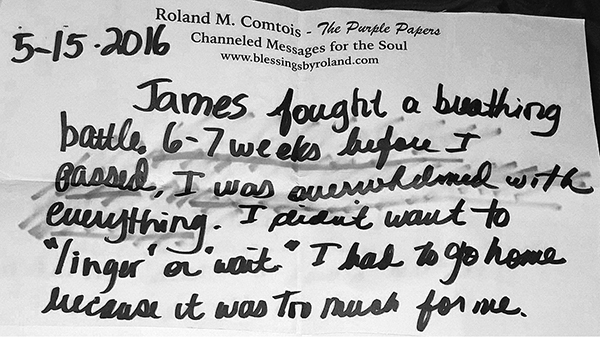 Roland M. Comtois - The Purple Papers
Channeled Messages for the Soul
www.blessingsbyroland.com
5-15-2016
James fought a breathing
battle. 6-7 weeks before I
passed, I was overwhelmed with
everything. I didn't want to
"linger" or "wait." I had to go home
because it was too much for me.